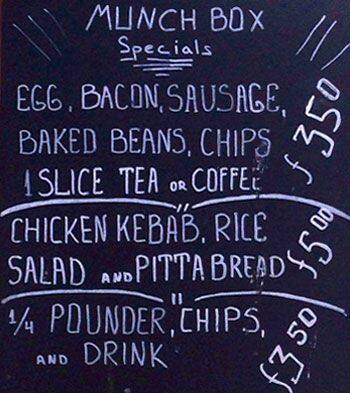 MUNCH BOX
Specials
EGG, BACON, SAUSAGE,
BAKED BEANS, CHIPS
1 SLICE TEA OR COFFEE
£3.50
CHICKEN KEBAB, RICE
SALAD AND PITTA BREAD
£5.00
1/4 POUNDER, CHIPS,
AND DRINK
£3.50